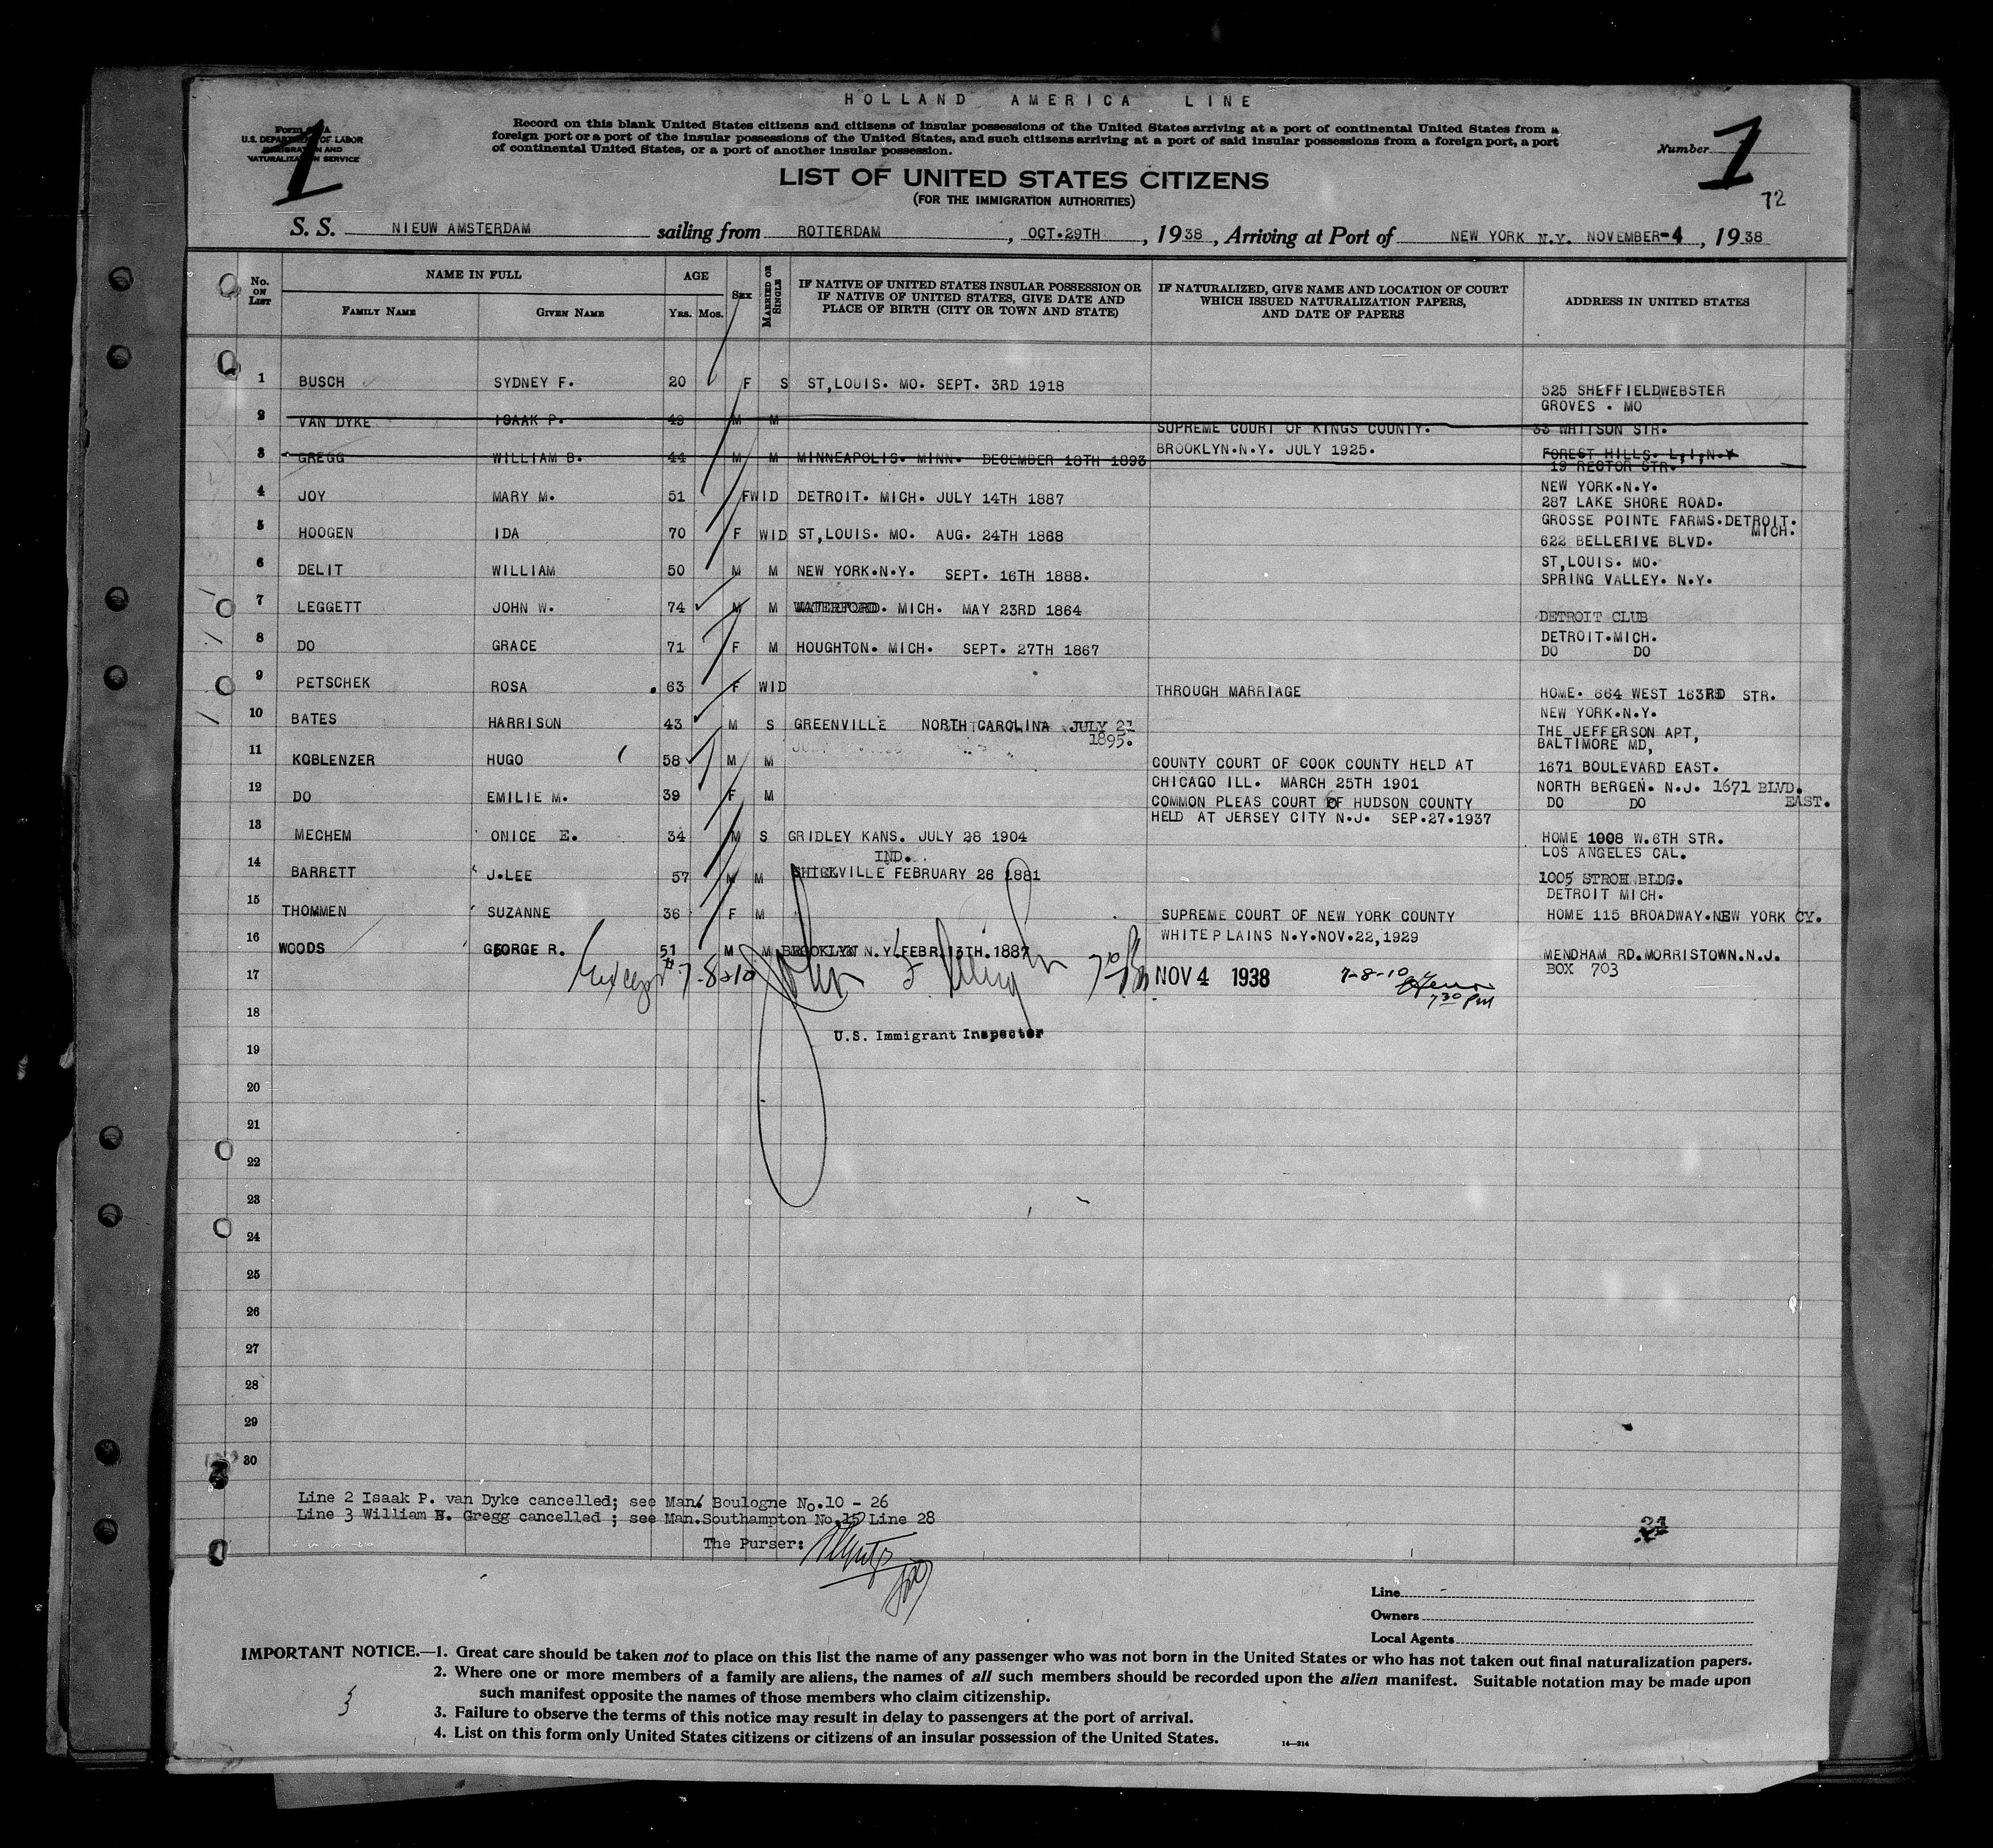 HOLLAND AMERICA LINE
U.S. DEPARTMENT OF LABOR
IMMIGRATION AND
NATURALIZATION SERVICE
1
Record on this blank United States citizens and citizens of insular possessions of the United States arriving at a port of continental United States from a
foreign port or a port of the insular possessions of the United States, and such citizens arriving at a port of said insular possessions from a foreign port, a port
of continental United States, or a port of another insular possession.
Number 1
72
LIST OF UNITED STATES CITIZENS
(FOR THE IMMIGRATION AUTHORITIES)
S. S. NIEUW AMSTERDAM sailing from ROTTERDAM, OCT.29TH, 1938, Arriving at Port of NEW YORK N.Y. NOVEMBER-4, 1938
No. ON LIST
NAME IN FULL
FAMILY NAME GIVEN NAME
AGE
Yrs. Mos.
SEX
MARRIED OR SINGLE
IF NATIVE OF UNITED STATES INSULAR POSSESSION OR
IF NATIVE OF UNITED STATES, GIVE DATE AND
PLACE OF BIRTH (CITY OR TOWN AND STATE)
IF NATURALIZED, GIVE NAME AND LOCATION OF COURT
WHICH ISSUED NATURALIZATION PAPERS,
AND DATE OF PAPERS
ADDRESS IN UNITED STATES
1 BUSCH SYDNEY F. 20 F S ST,LOUIS. MO. SEPT. 3RD 1918 525 SHEFFIELDWEBSTER
GROVES . MO
2 VAN DYKE ISAAK P. 49 M M SUPREME COURT OF KINGS COUNTY. 33 WHITSON STR.
BROOKLYN.N.Y. JULY 1925. FOREST HILLS. L,I,N.Y
3 GREGG WILLIAM B. 44 M M MINNEAPOLIS. MINN. DECEMBER 18TH 1893 19 RECTOR STR.
NEW YORK.N.Y.
4 JOY MARY M. 51 F WID DETROIT. MICH. JULY 14TH 1887 287 LAKE SHORE ROAD.
GROSSE POINTE FARMS.DETROIT.
MICH.
5 HOOGEN IDA 70 F WID ST,LOUIS. MO. AUG. 24TH 1868 622 BELLERIVE BLVD.
ST,LOUIS. MO.
6 DELIT WILLIAM 50 M M NEW YORK.N.Y. SEPT. 16TH 1888. SPRING VALLEY. N.Y.
7 LEGGETT JOHN W. 74 M M WATERFORD. MICH. MAY 23RD 1864 DETROIT CLUB
DETROIT.MICH.
8 DO GRACE 71 F M HOUGHTON. MICH. SEPT. 27TH 1867 DO DO
9 PETSCHEK ROSA 63 F WID THROUGH MARRIAGE HOME. 664 WEST 163RD STR.
NEW YORK.N.Y.
10 BATES HARRISON 43 M S GREENVILLE NORTH CAROLINA JULY 21
1895.
THE JEFFERSON APT,
BALTIMORE MD,
11 KOBLENZER HUGO 58 M M COUNTY COURT OF COOK COUNTY HELD AT 1671 BOULEVARD EAST.
CHICAGO ILL. MARCH 25TH 1901 NORTH BERGEN. N.J. 1671 BLVD.
EAST.
12 DO EMILIE M. 39 F M COMMON PLEAS COURT OF HUDSON COUNTY DO DO
HELD AT JERSEY CITY N.J. SEP.27.1937
13 MECHEM ONICE E. 34 M S GRIDLEY KANS. JULY 28 1904 HOME 1008 W.6TH STR.
LOS ANGELES CAL.
IND.
14 BARRETT J.LEE 57 M M FEBRUARY 26 1881 1005 STROH BLDG.
DETROIT MICH.
15 THOMMEN SUZANNE 36 F M SUPREME COURT OF NEW YORK COUNTY HOME 115 BROADWAY.NEW YORK CY.
WHITEPLAINS N.Y.NOV.22,1929
16 WOODS GEORGE R. 51 M M BROOKLYN N.Y.FEBR.13TH.1887 MENDHAM RD.MORRISTOWN.N.J.
BOX 703
17 Except # 7-8&10 NOV 4 1938 7-8-10
730 PM
18
U.S. Immigrant Inspector
19
20
21
22
23
24
25
26
27
28
29
30
Line 2 Isaak P. van Dyke cancelled; see Man. Boulogne No.10 - 26
Line 3 William H. Gregg cancelled ; see Man.Southampton No.15 Line 28
The Purser:
Line
Owners
Local Agents
IMPORTANT NOTICE.—1. Great care should be taken not to place on this list the name of any passenger who was not born in the United States or who has not taken out final naturalization papers.
2. Where one or more members of a family are aliens, the names of all such members should be recorded upon the alien manifest. Suitable notation may be made upon
such manifest opposite the names of those members who claim citizenship.
3. Failure to observe the terms of this notice may result in delay to passengers at the port of arrival.
4. List on this form only United States citizens or citizens of an insular possession of the United States.
14—214